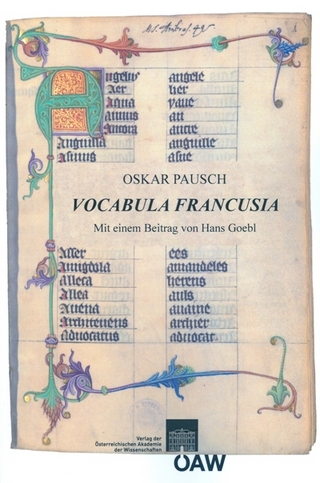 Angelus angele
Aer her
Aqua yaue
Annus an
Ancora ancre
Anguilla anguille
Asinus asne
OSKAR PAUSCH
VOCABULA FRANCUSIA
Mit einem Beitrag von Hans Goebl
Asser ees
Amigdola amandeles
Alleca herens
Allea auls
Auena auaine
Architenens archier
Aduocatus aduocat
Verlag der
Österreichischen Akademie
der Wissenschaften
ÖAW